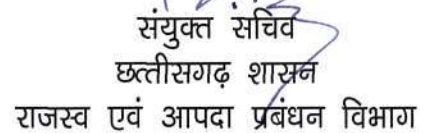 संयुक्त सचिव
छत्तीसगढ़ शासन
राजस्व एवं आपदा प्रबंधन विभाग